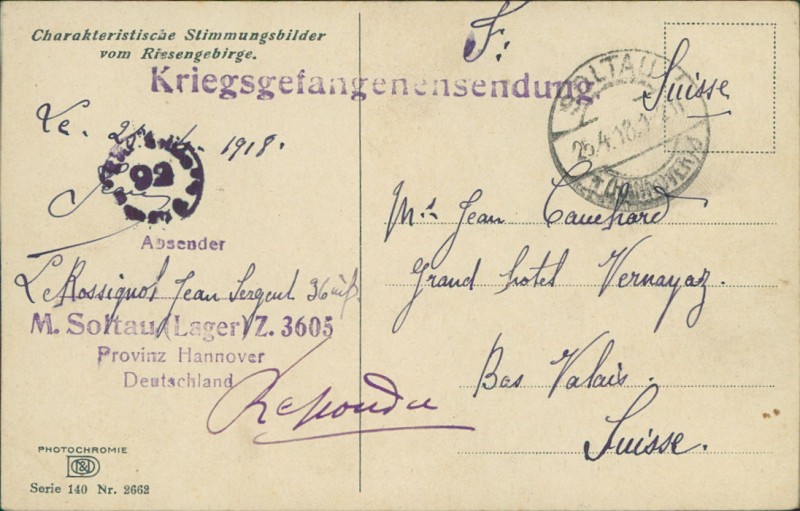 Charakteristische Stimmungsbilder
vom Riesengebirge.
F.
Kriegsgefangenensendung.
Suisse
SOLTAU
25.4.18.
(HANNOVER)
Le 1918.
92
Absender
Le Rossignol Jean Sergent 36
M. Soltau (Lager) Z. 3605
Provinz Hannover
Deutschland
Repondu
Jean Cauchard
Grand hotel Vernayaz.
Bas Valais.
Suisse.
PHOTOCHROMIE
Serie 140 Nr. 2662